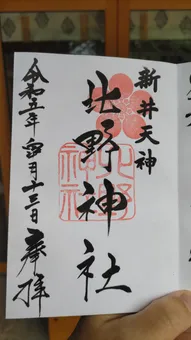 新井天神
北野神社
北野
神社
令和五年 月十三日 奉拝